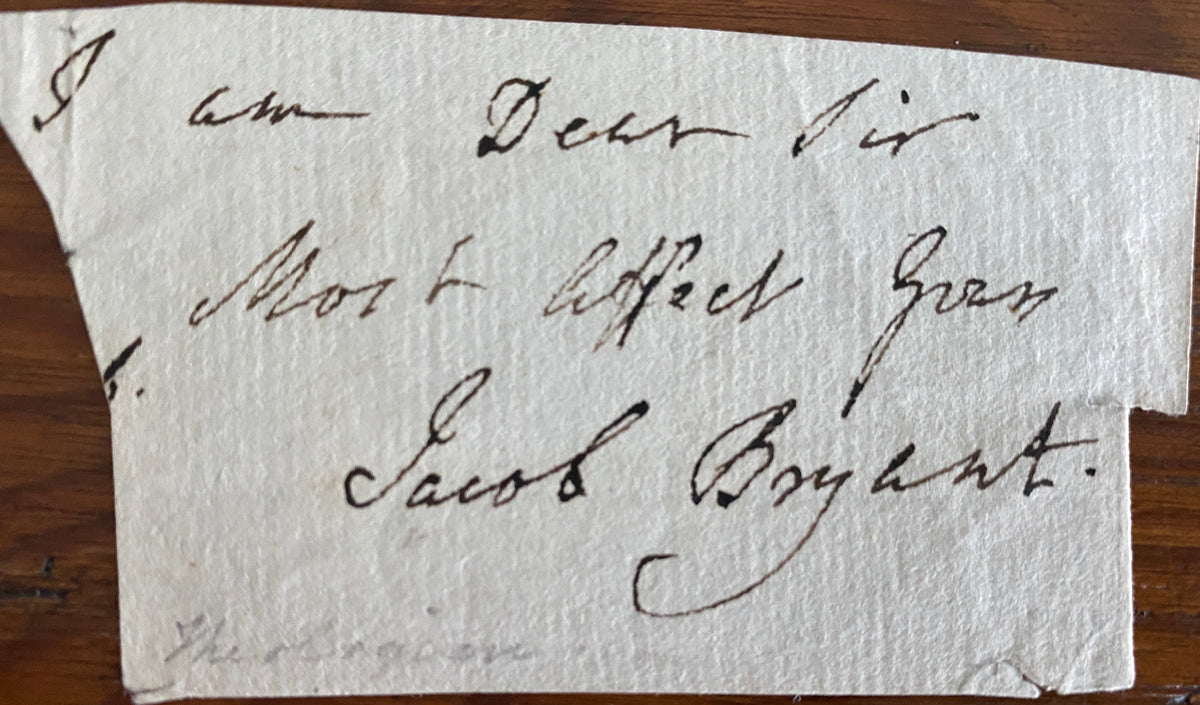 I am Dear Sir
Most Affect yours
b.
Jacob Bryant.
The